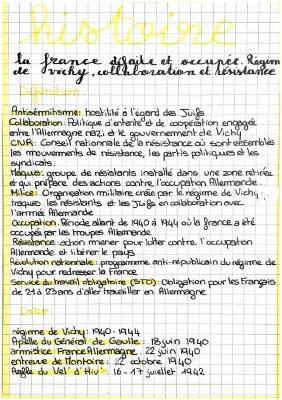 histoire
la france défaite et occupée. Régime
de vichy, collaboration et résistance
Définition
Antisémitisme: hostilité à l'égard des Juifs
Collaboration: Politique d'entente et de coopération engagée
entre l'Allemagne nazi et le gouvernement de Vichy
CNR: Conseil nationale de la résistance où sont rassemblés
les mouvements de résistance, les partis politiques et les
syndicats.
Maquis: groupe de résistants installé dans une zone retirée
et qui prépare des actions contre l'occupation Allemande.
Milice: Organisation militaire créée par le régime de Vichy,
traques les résistants et les Juifs en collaboration avec
l'armée Allemande
Occupation: Période allant de 1940 à 1944 où la france a été
occupée par les troupes Allemande
Résistance: action mener pour lutter contre l'occupation
Allemande et libérer le pays
Révolution nationale: programme anti-républicain du régime de
Vichy pour redresser la France
Service du travail obligatoire (STO): Obligation pour les Français
de 21 à 23 ans d'aller travailler en Allemagne
régime de Vichy: 1940-1944
Apelle du Général de Gaulle: 18 juin 1940
armistice France Allemagne: 22 juin 1940
entrevue de Montoire: 22 octobre 1940
Rafle du Vel' d'Hiv': 16-17 juillet 1942